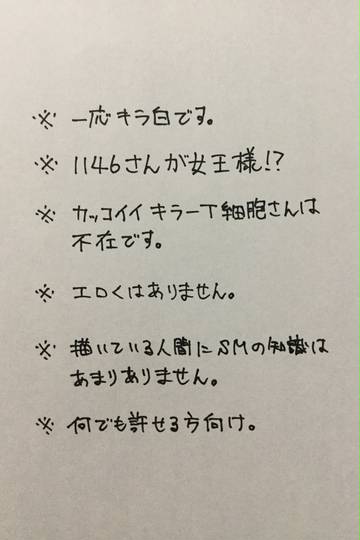 ※ 一応キラ白です。
※ 1146さんが女王様!?
※ カッコイイキラーT細胞さんは
不在です。
※ エロくはありません。
※ 描いている人間にSMの知識は
あまりありません。
※ 何でも許せる方向け。